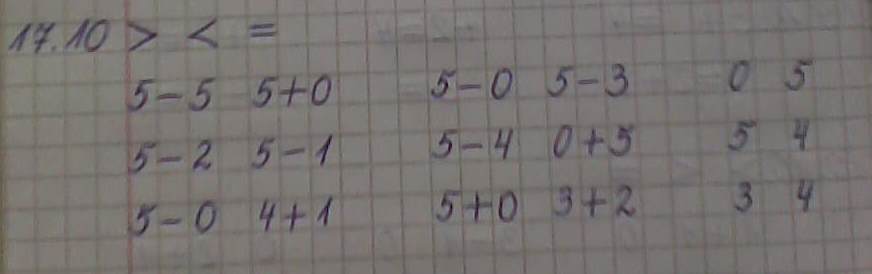 17.10 > < =
5-5 5+0 5-0 5-3 0 5
5-2 5-1 5-4 0+5 5 4
5-0 4+1 5+0 3+2 3 4